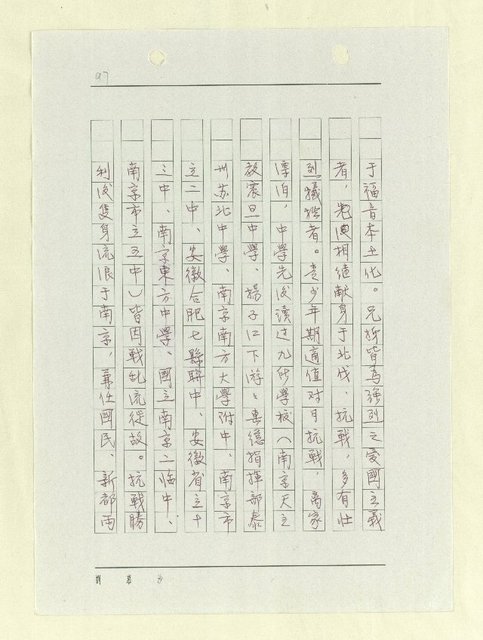 97
于福音本土化。兄姊皆為強烈之愛國主義
者，先後相繼獻身于北伐、抗戰，多有壯
烈犧牲者。青少年期適值对日抗戰，离家
漂泊，中學先後讀过九所學校（南京天主
教震旦中學、揚子江下游 岳德指揮部泰
州苏北中學、南京南方大學附中、南京市
立二中、安徽合肥七縣聯中、安徽省立十
三中、南京東方中學、國立南京二临中、
南京市立五中）皆因戰乱流徙故。抗戰勝
利後隻身流浪于南京，兼任國民、新都兩